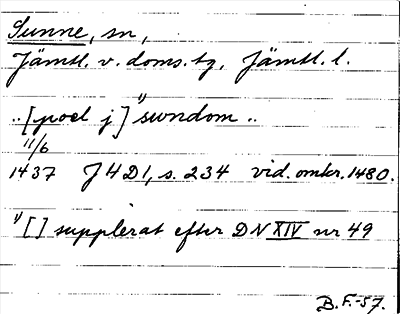 Sunne, sn,
Jämtl. v. doms. tg. Jämtl. l.
..[poel j]¹⁾ swndom ..
11/6
1437 J H D 1, s. 234 vid. omkr. 1480.
¹⁾[] supplerat efter DN XIV nr 49
B.F.-57.